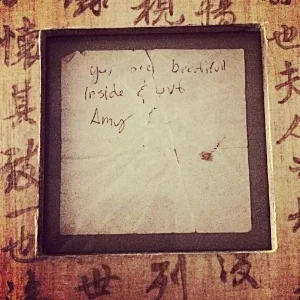 you are beautifull
Inside & out
Amy
視
懷其致一也
也夫人
世列